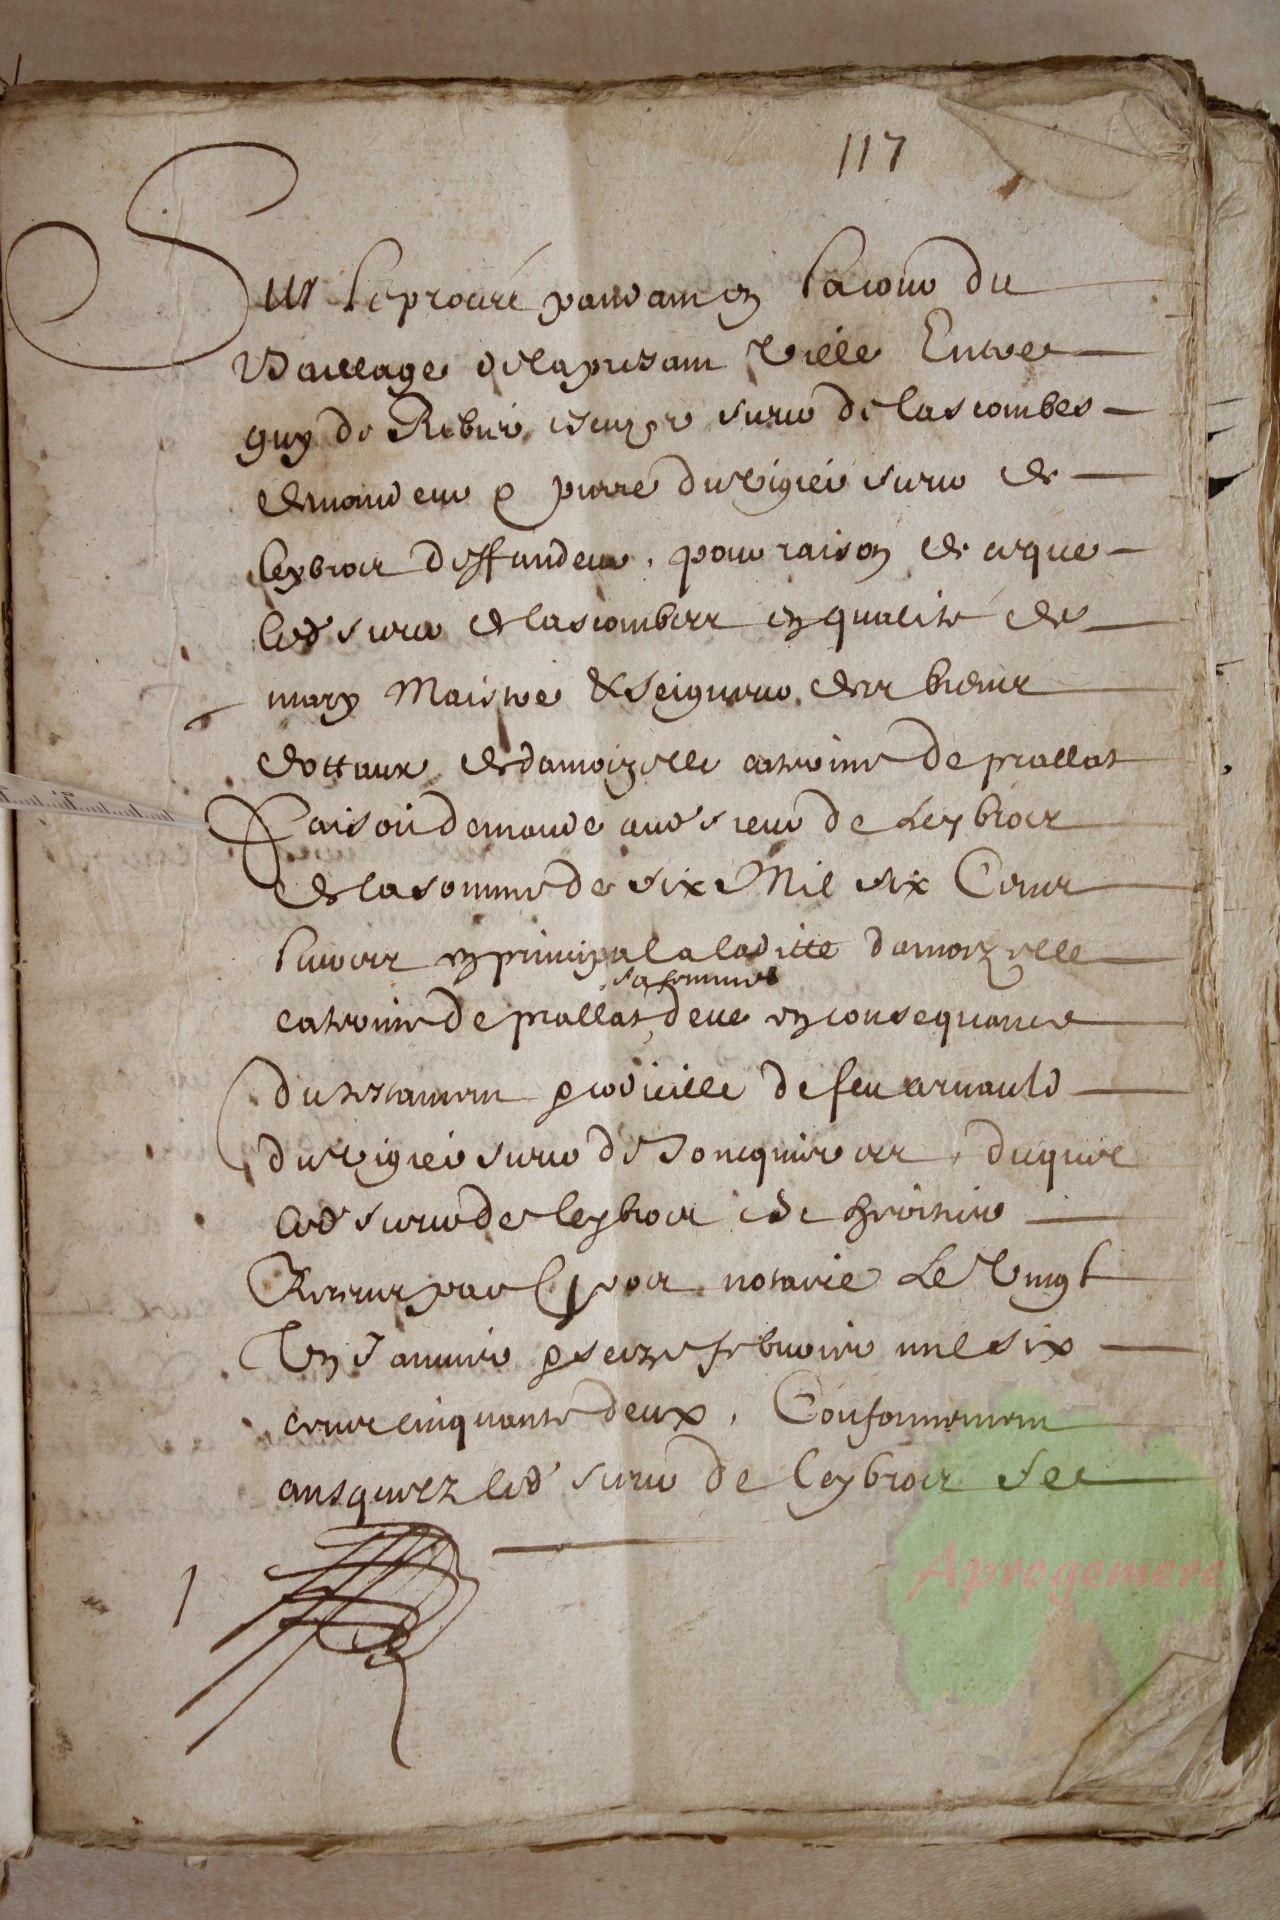 117
Sur le procaré pandam en la cour du
Bailliage de la presam ville Entre
guy de Ribier escuyer sieur de las combes
demandeur & pierre du vigier sieur de
leybroix deffandeur. pour raison de ce que
led sieur de lascombes en qualité de
mary Maistre & seigneur des biens
dottaux de damoizelle catrine de prallat
faisoit demande aud sieur de Leybroix
de la somme de six Mil six Cens
livres en principal a laditte damoizelle
sa femme
catrine de prallat deue en consequance
du testamen & codicille de feu arnauld
du vigier sieur de Joncquieres, duquel
led sieur de leybroix est heritier
Receus par notaire Le vingt
Un Janvier & seize febvrier mil six
cens cinquante deux. Conformemen
ausquelz led sieur de Leybroix
1
Aprogemere